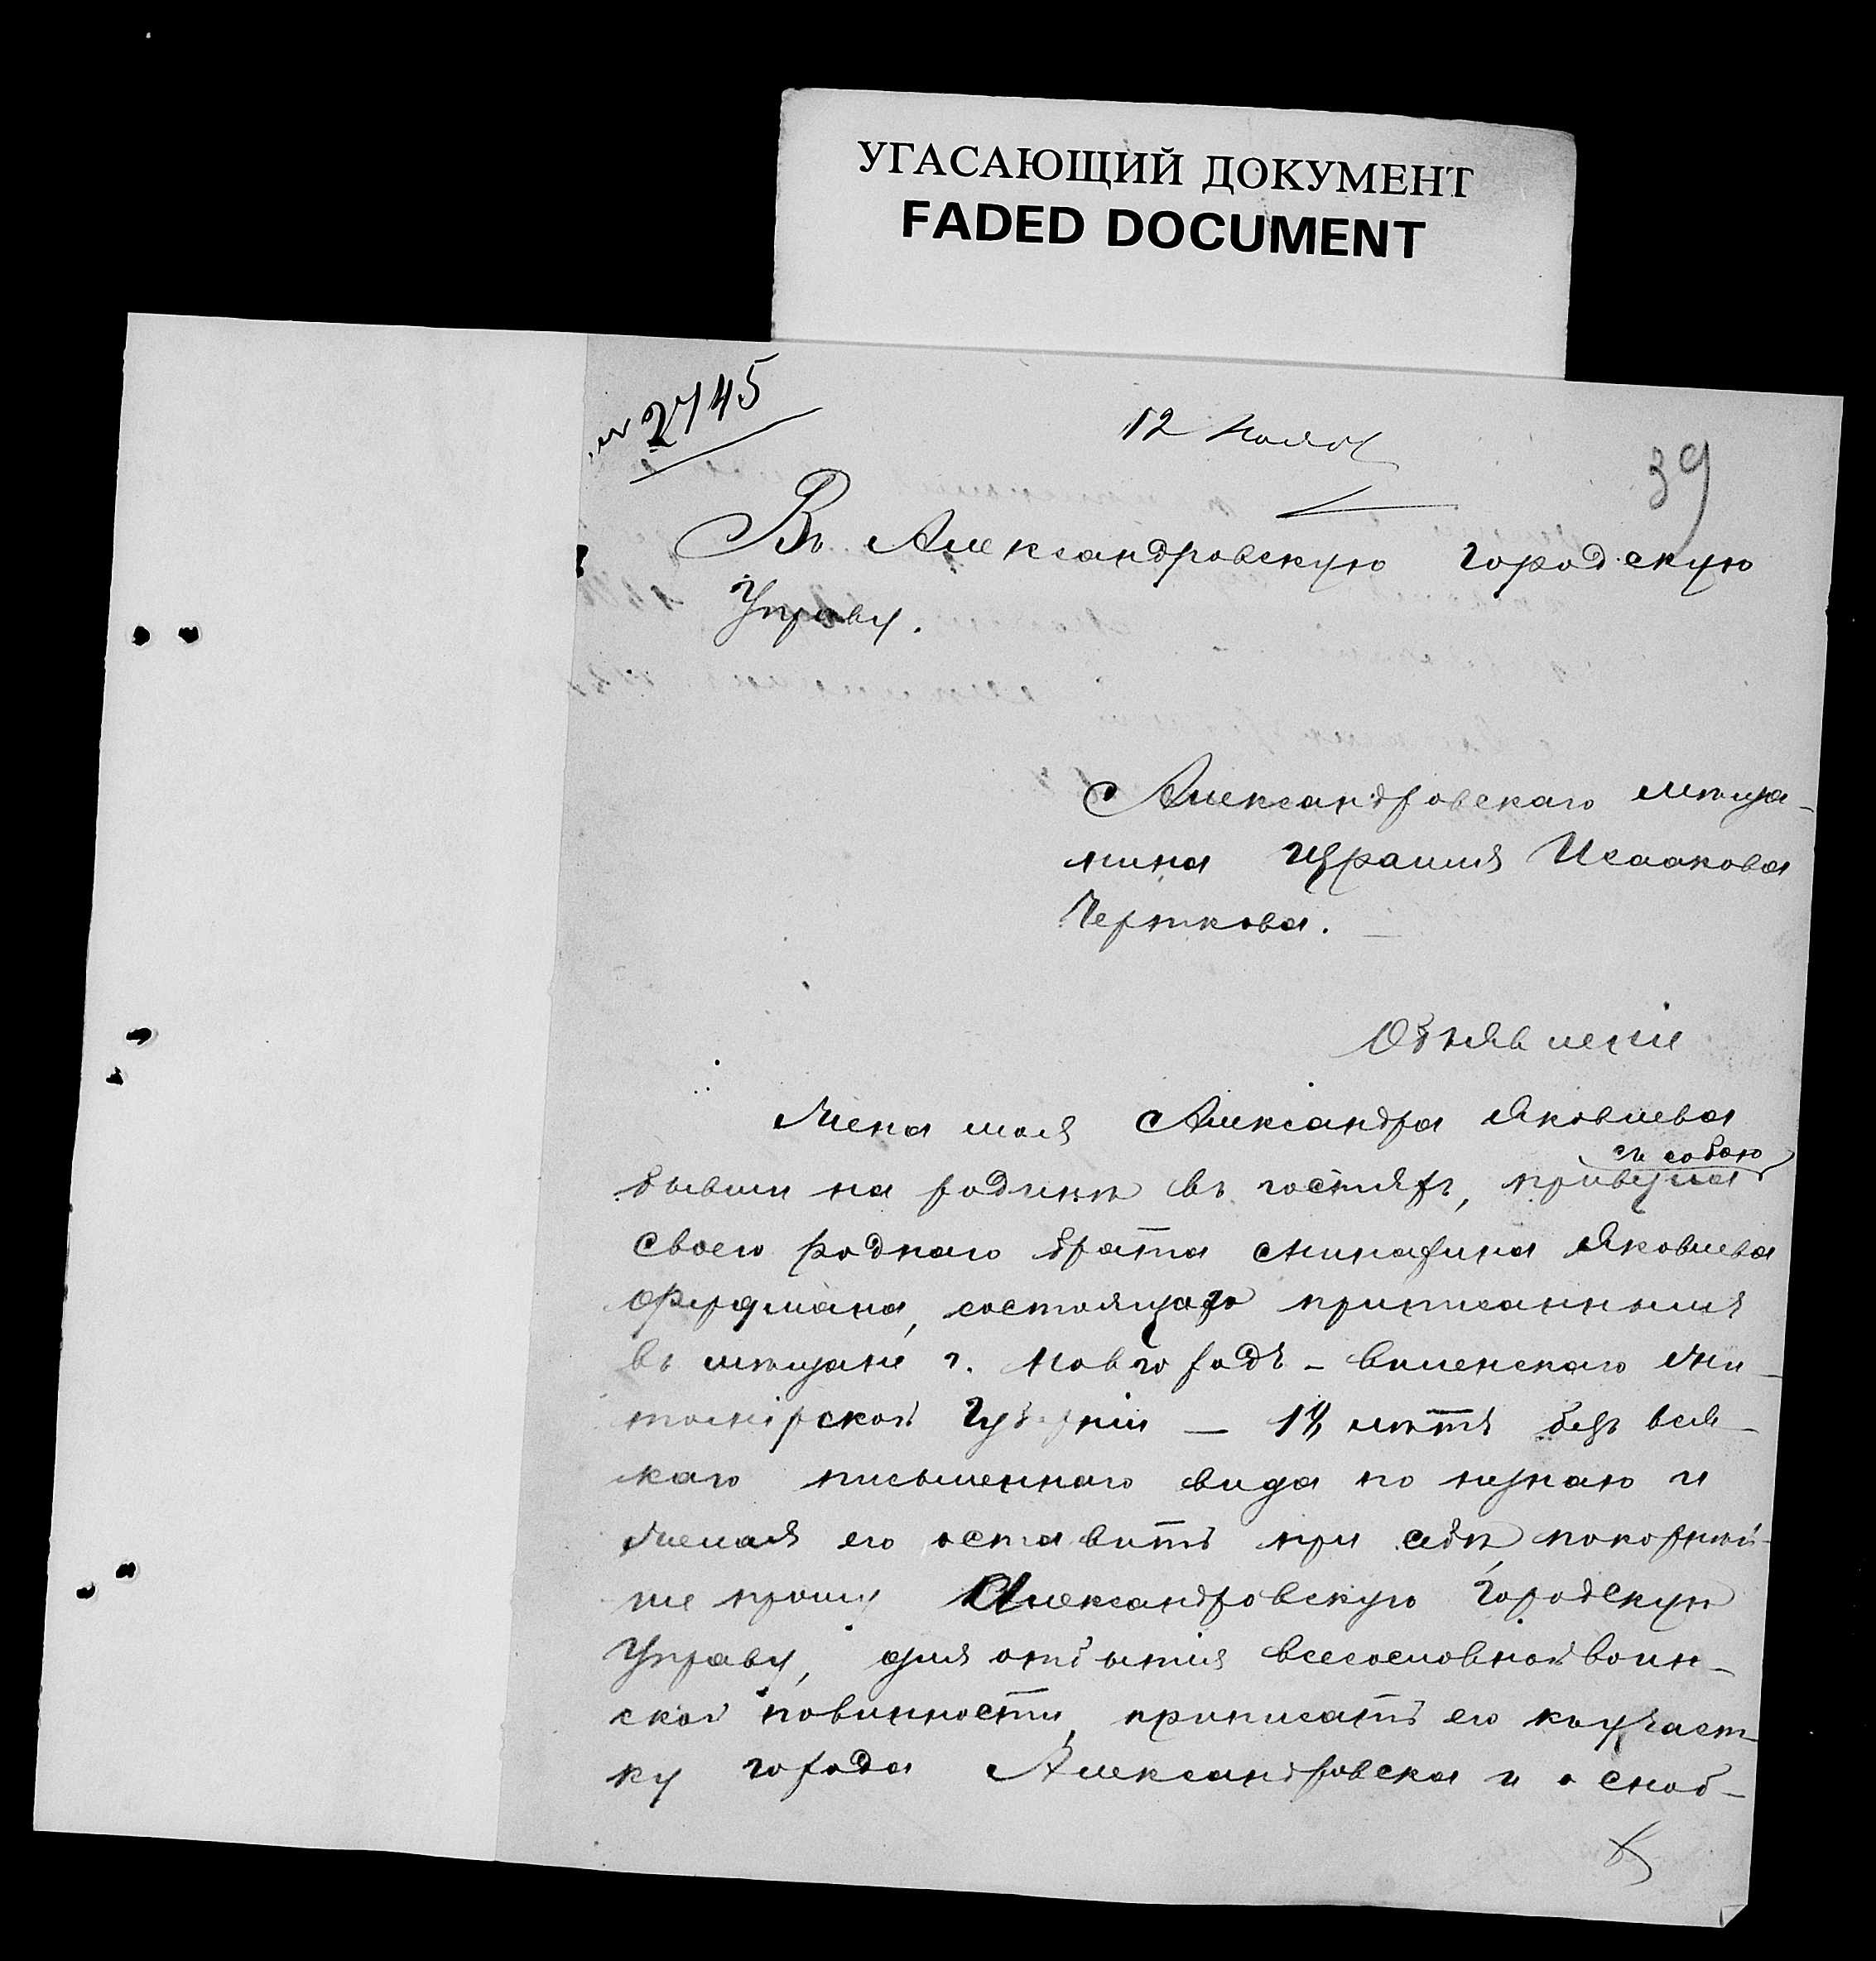 УГАСАЮЩИЙ ДОКУМЕНТ
FADED DOCUMENT
№ 2745
12 Ноябр
39
Въ Александровскую городскую
Управу.
Александровскаго мѣща-
нина Израиля Исаакова
Черткова.
Объявленіе
Жена моя Александра Яковлева
съ собою
бывши на родинѣ въ гостяхъ, привезла
своего роднаго брата Яковлева
состоящаго приписаннымъ
въ мѣщане г. Новгородъ-волынскаго Жи-
томірской Губерніи — лѣтъ безъ вся-
каго письменнаго вида по и
желая его оставить при себѣ, покорнѣй-
ше прошу Александровскую Городскую
Управу, для отбытія всесословной воин-
ской повинности, приписать его къ участ-
ку города Александровска и о снаб-